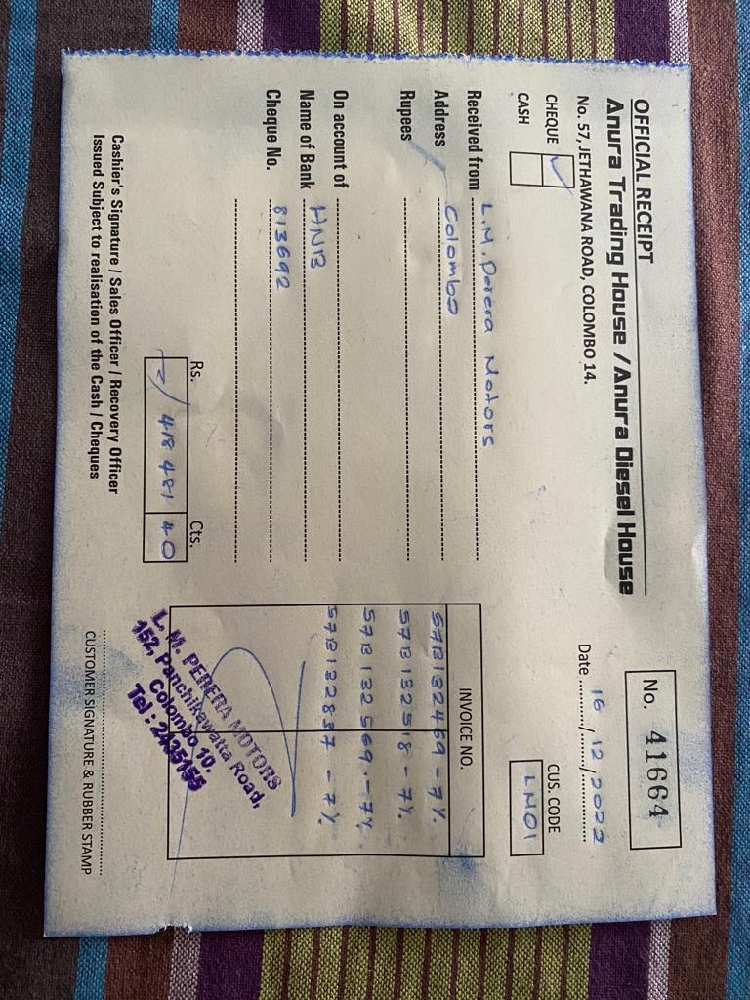 OFFICIAL RECEIPT
Anura Trading House / Anura Diesel House
No. 57, JETHAWANA ROAD, COLOMBO 14.
No. 41664
Date 16/12/2022
CHEQUE ✓
CASH
CUS. CODE
LM01
Received from L.M. Perera Motors
Address Colombo
Rupees
On account of
Name of Bank HNB
Cheque No. 813692
INVOICE NO.
57B132469 - 7%
57B132518 - 7%
57B132569 - 7%
57B132837 - 7%
Rs. Cts.
418 481 40
L. M. PERERA MOTORS
152, Panchikawatta Road,
Colombo 10.
Tel : 2435155
Cashier's Signature / Sales Officer / Recovery Officer
Issued Subject to realisation of the Cash / Cheques
CUSTOMER SIGNATURE & RUBBER STAMP